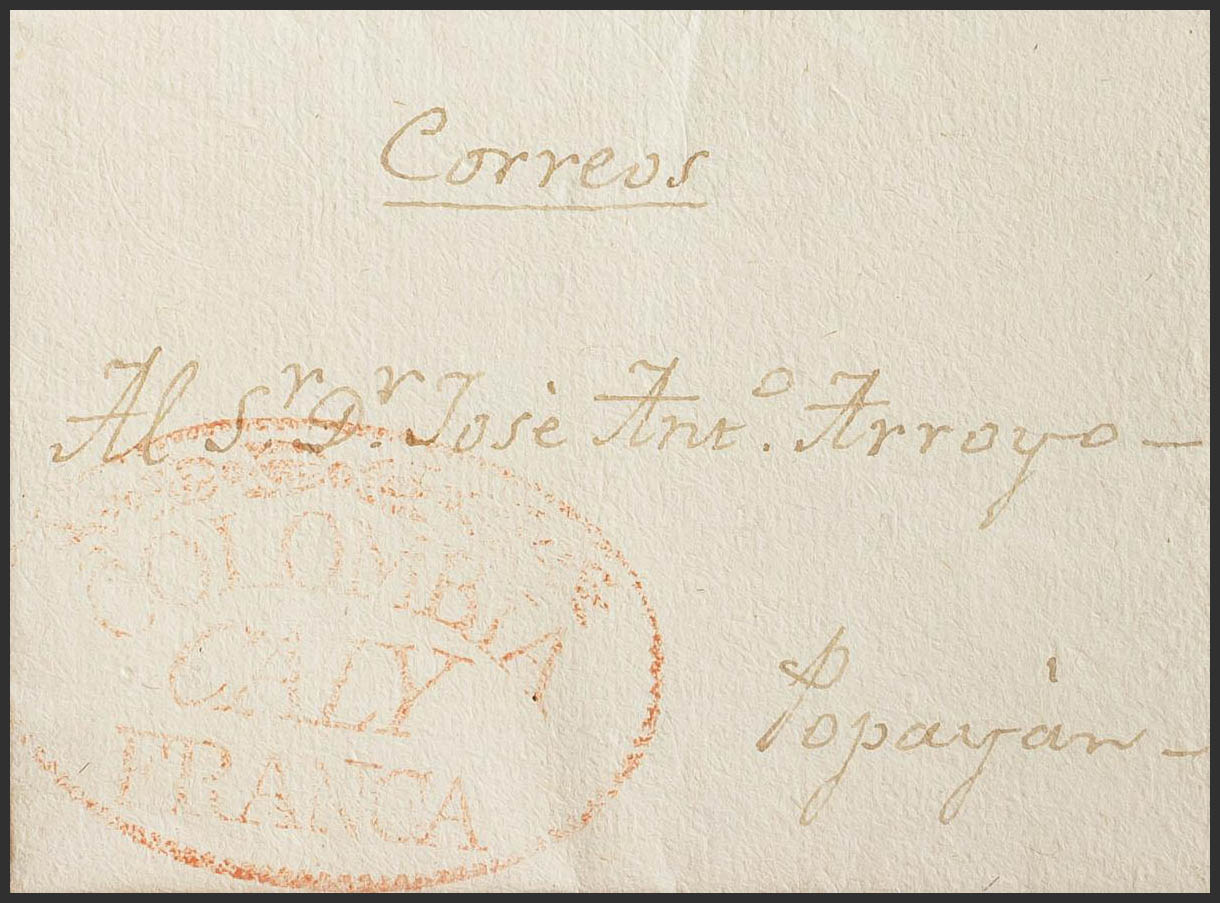 Correos
Al S.r D.r Josè Ant.o Arroyo —
COLOMBIA
CALY
FRANCA
Popayán —